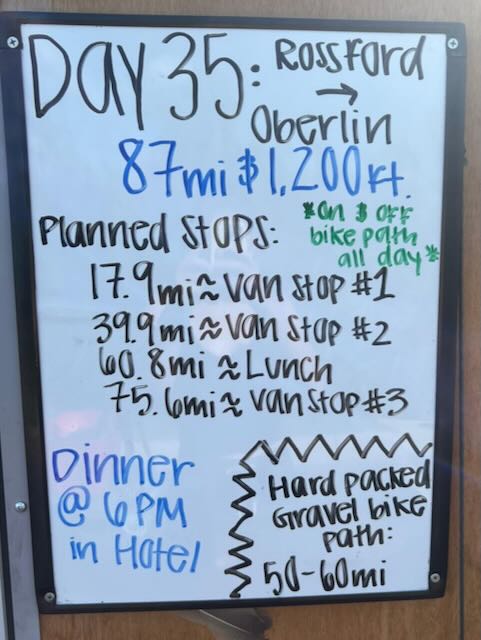 Day 35: Rossford
→
Oberlin
87mi $ 1,200 ft.
Planned Stops:
*on $ off
bike path
all day*
17.9mi ≈ Van Stop #1
39.9mi ≈ Van Stop #2
60.8mi ≈ Lunch
75.6mi ≈ Van Stop #3
Dinner
@ 6PM
in Hotel
Hard packed
Gravel bike
path:
50-60mi